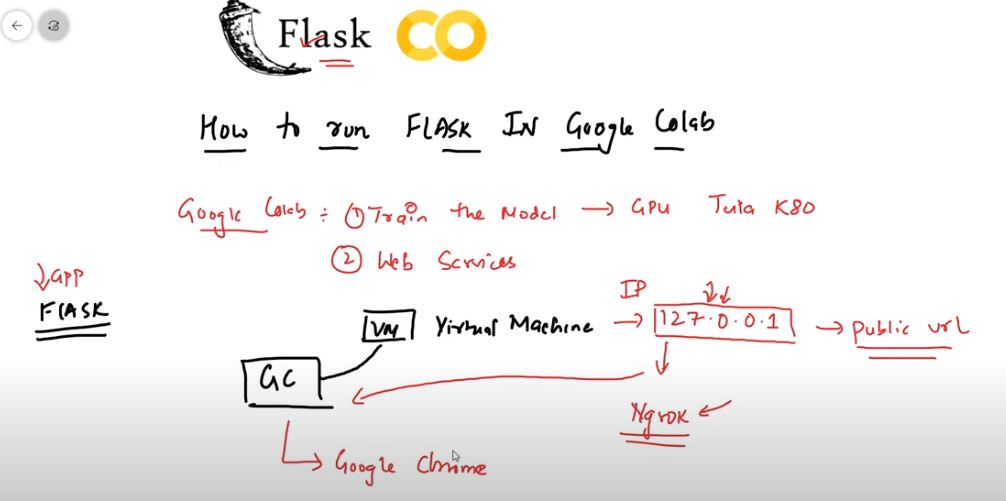 Flask CO
How to run FLASK IN Google Colab
Google Colab : ① Train the Model → GPU Tula K80
② Web Services
↓ app
FLASK
IP
VM Virtual Machine → 127.0.0.1 → public url
GC
Ngrok
Google Chrome